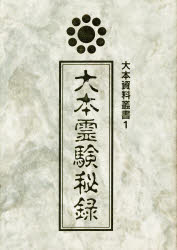 大本資料叢書1
大本霊験秘録